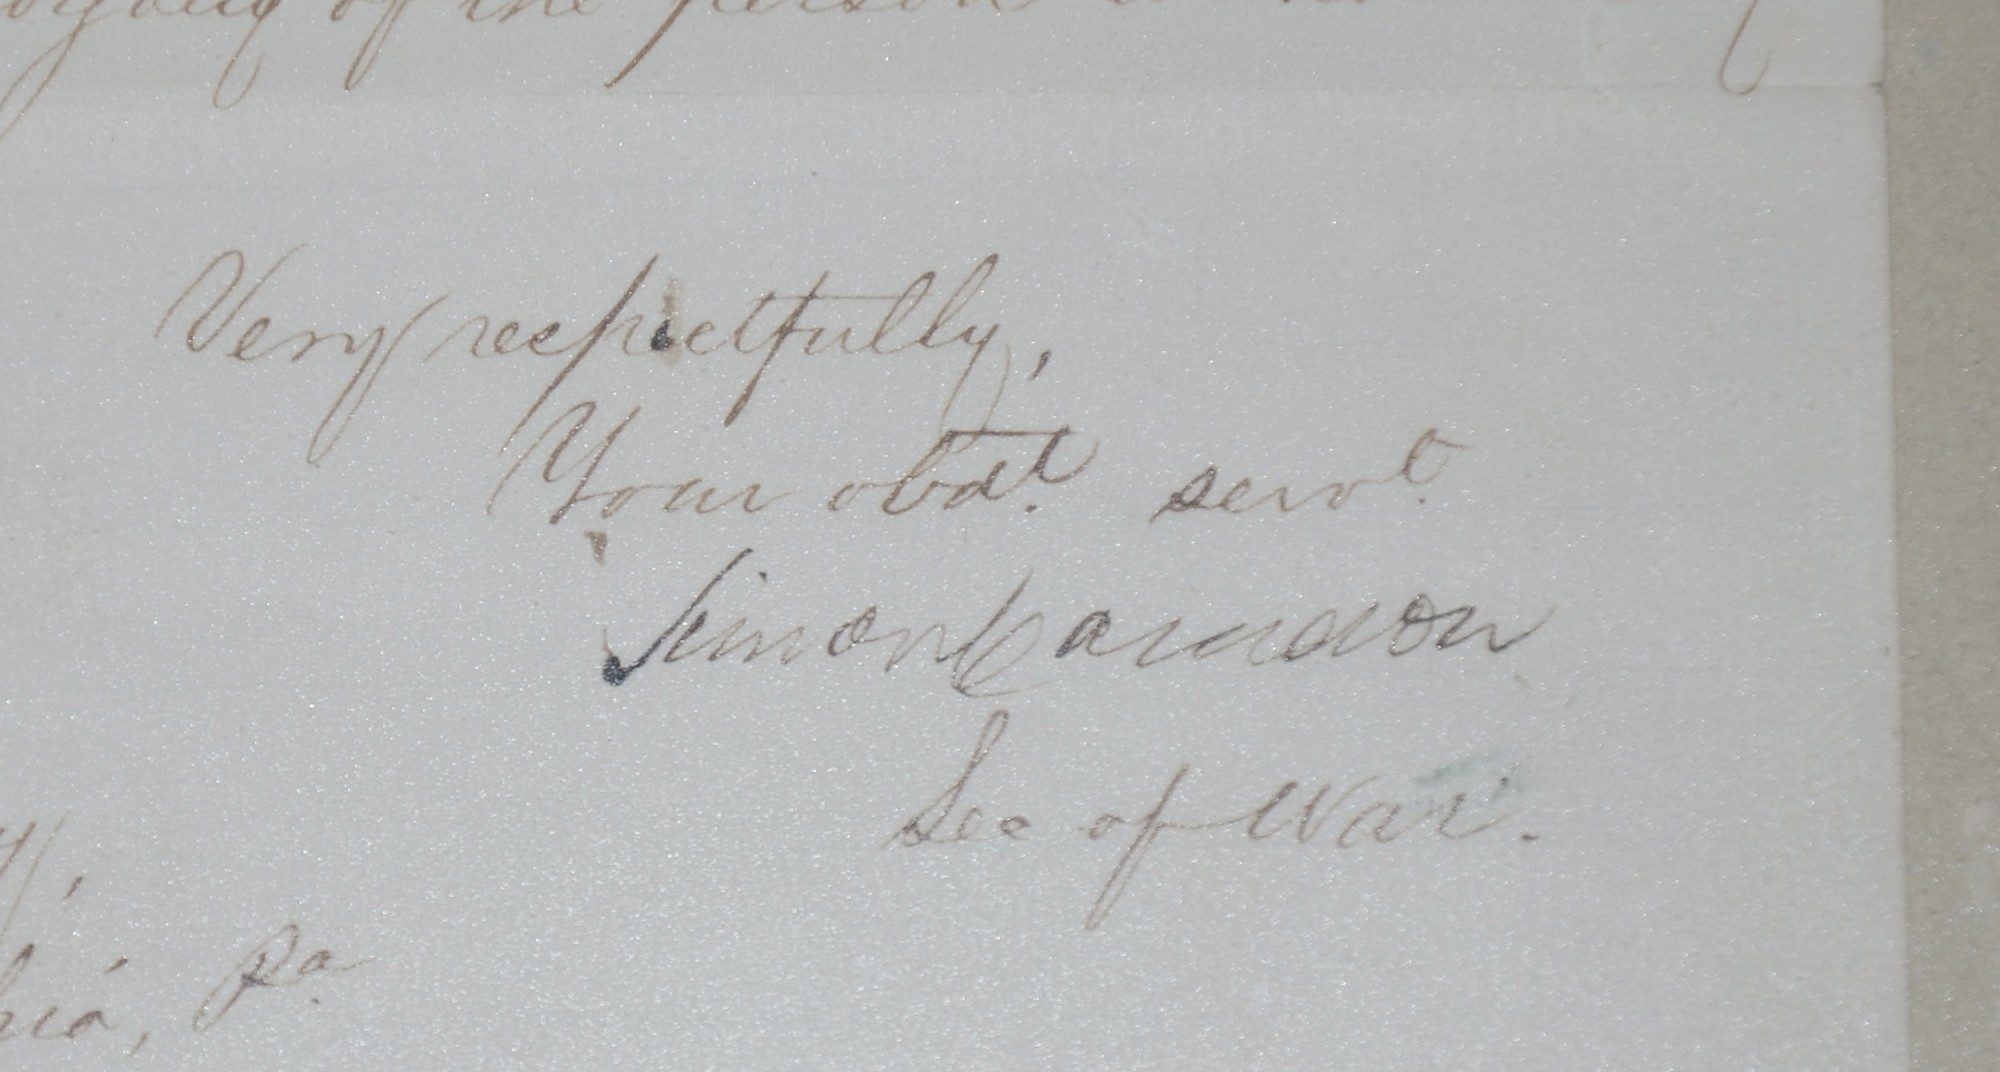 of the person
Very respectfully,
Your obdt. servt.
Simon Cameron
Sec of War.
Pa.